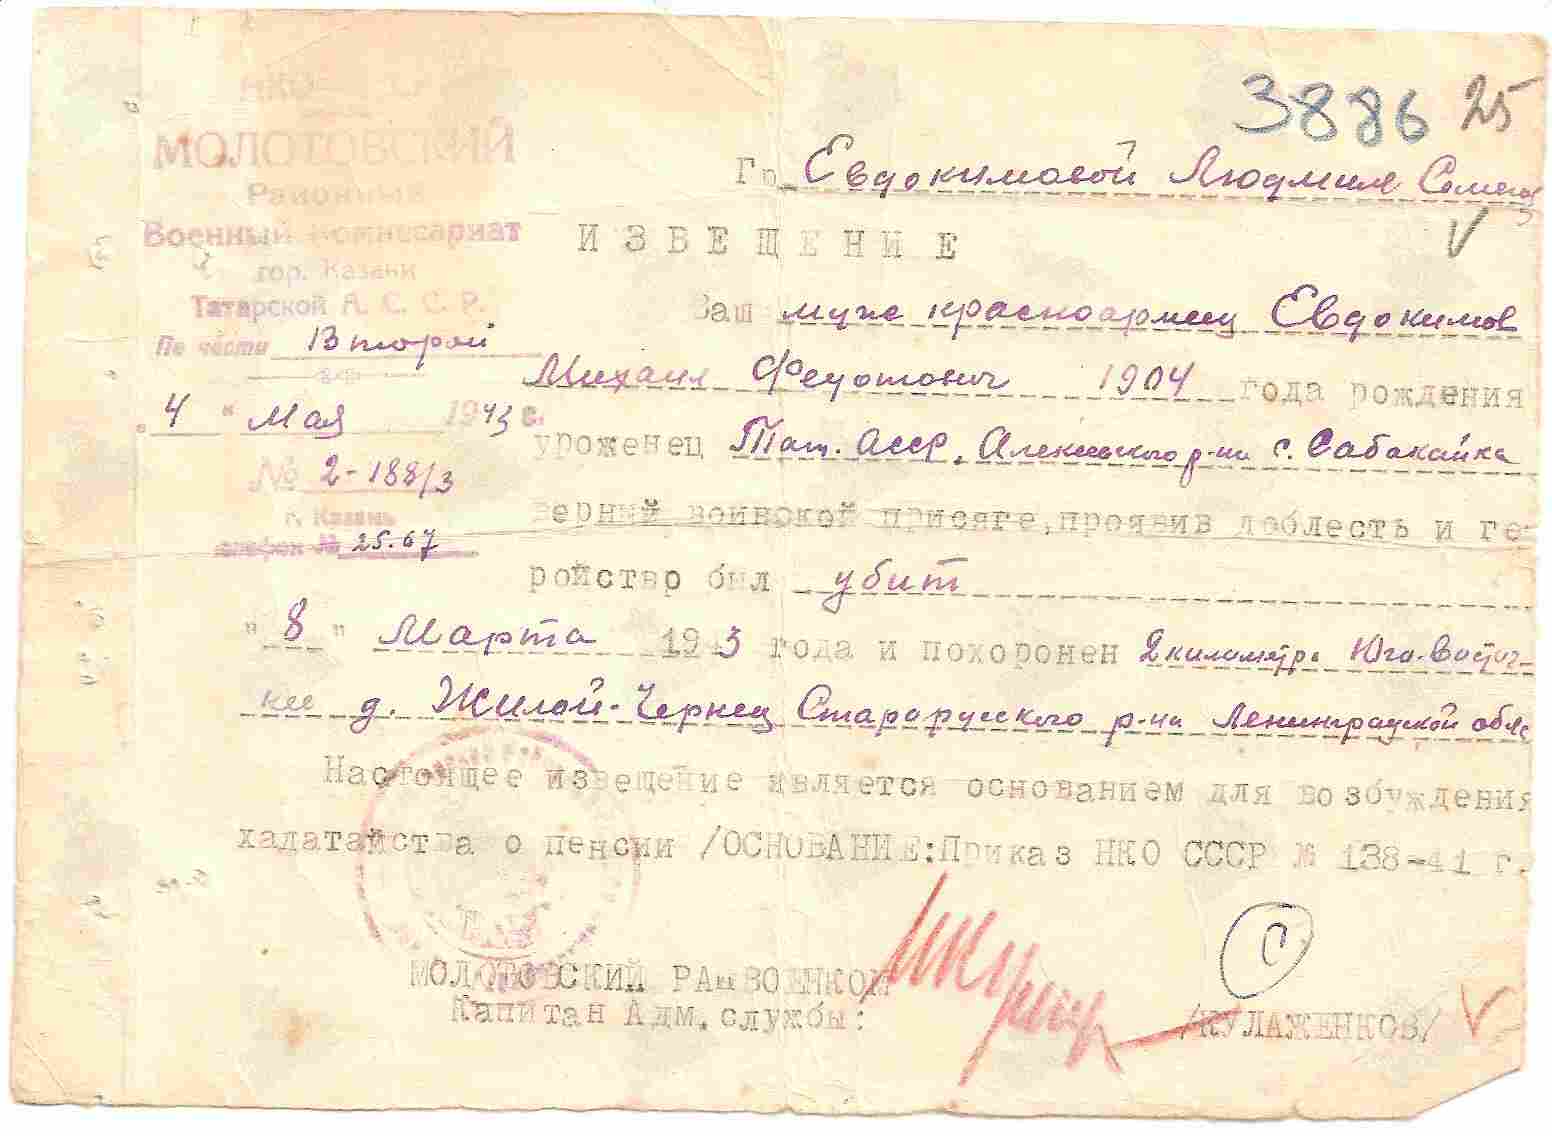 3886 25
НКО
МОЛОТОВСКИЙ
Районный
Военный комиссариат
гор. Казани
Татарской А. С. С. Р.
По части Второй
4 " Мая 1943 г.
№ 2-188/3
г. Казань
телефон № 25.67
Гр. Евдокимовой Людмиле Семен
ИЗВЕЩЕНИЕ
Ваш муж красноармеец Евдокимов
Михаил Федотович 1904 года рождения
уроженец Тат. АССР, Алексеевского р-на с. Сабакайка
верный воинской присяге, проявив доблесть и ге-
ройство был убит
" 8 " Марта 193 года и похоронен 2 километра Юго-Восточ-
нее д. Жилой-Чернец Старорусского р-на Ленинградской обл
Настоящее извещение является основанием для возбуждения
хадатайства о пенсии /ОСНОВАНИЕ: Приказ НКО СССР № 138-41 г.
МОЛОТОВСКИЙ РАЙВОЕНКОМ
Капитан Адм. службы:
/КУЛАЖЕНКОВ/